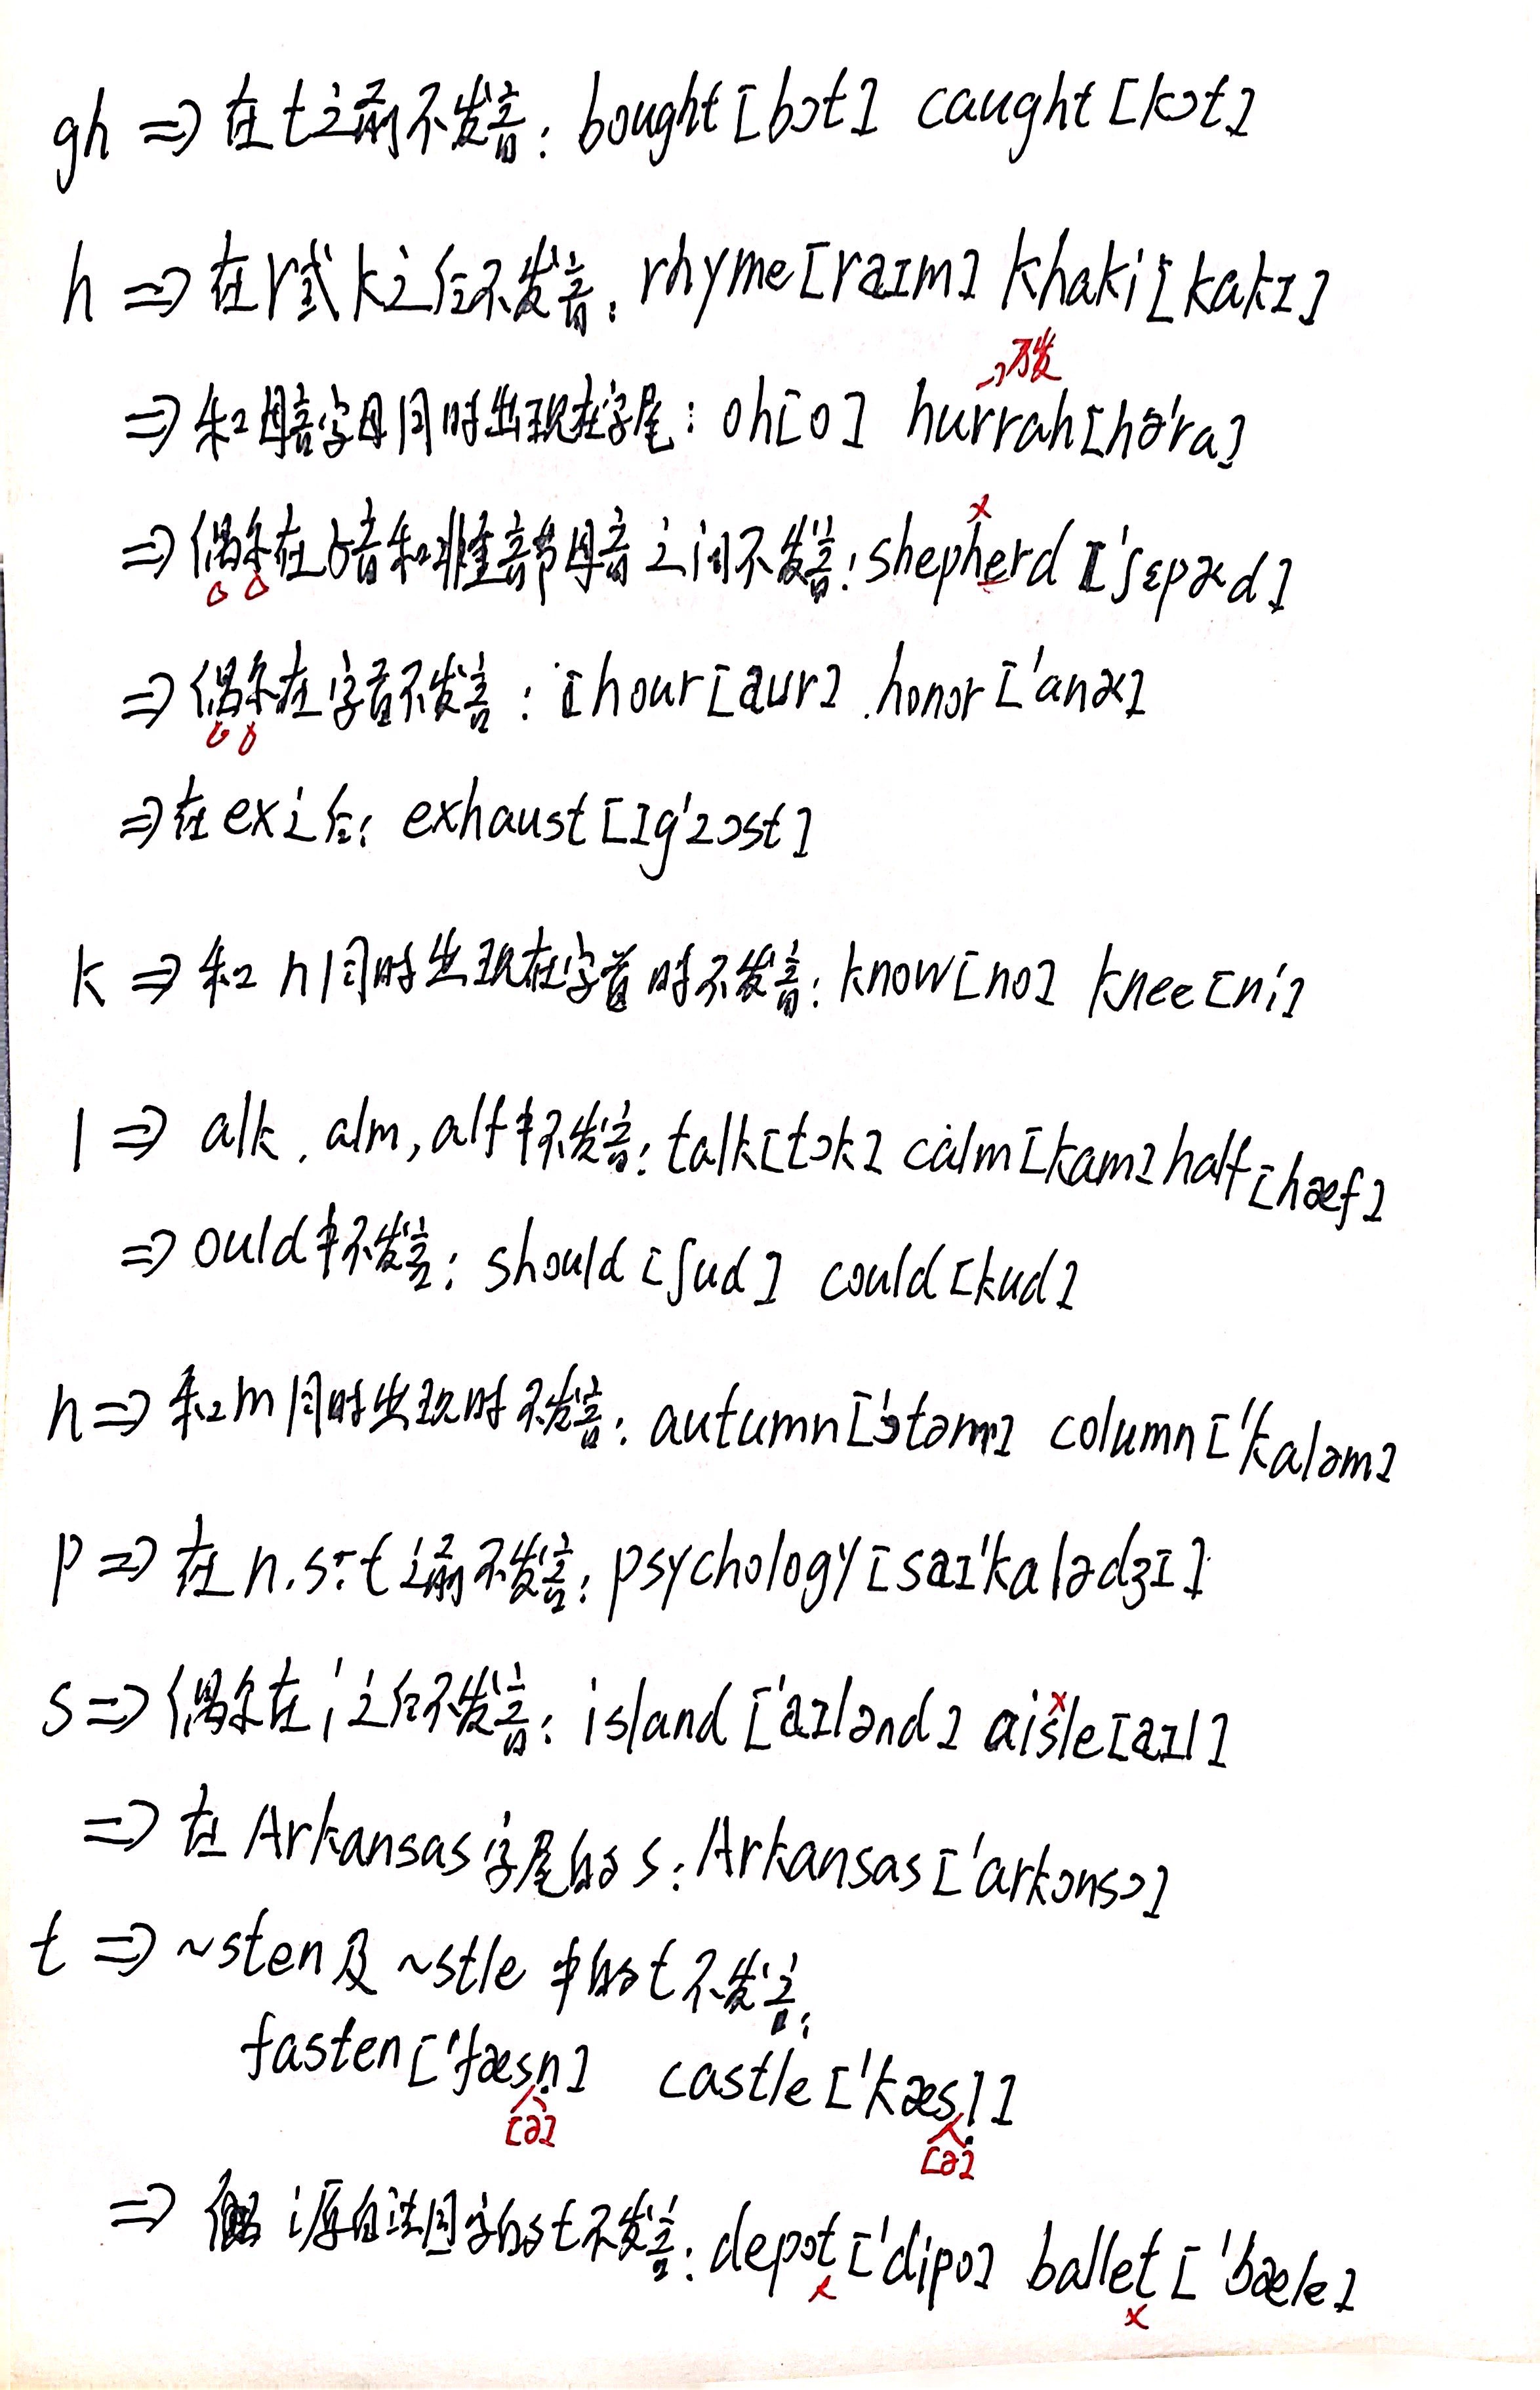 gh ⇒ 在t之前不发音: bought [bɔt] caught [kɔt]
h ⇒ 在r或k之后不发音: rhyme [raɪm] khaki [kakɪ]
→不发
⇒ 和母音字母同时出现在字尾: oh [o] hurrah [hə'ra]
x
⇒ 偶尔在子音和非重音节母音之间不发音: shepherd ['ʃɛpɚd]
⇒ 偶尔在字首不发音: hour [aur]. honor ['anɚ]
⇒ 在ex之后: exhaust [ɪg'zɔst]
k ⇒ 和n同时出现在字首时不发音: know [no] knee [ni]
l ⇒ alk, alm, alf中不发音: talk [tɔk] calm [kam] half [hæf]
⇒ ould中不发音: should [ʃud] could [kud]
n ⇒ 和m同时出现时不发音: autumn ['ɔtəm] column ['kaləm]
p ⇒ 在n.s.t之前不发音: psychology [saɪ'kalədʒɪ]
s ⇒ 偶尔在i之后不发音: island ['aɪlənd] aisle [aɪl]
x
⇒ 在Arkansas字尾的s: Arkansas ['arkənsɔ]
t ⇒ ~sten及~stle中的t不发音:
fasten ['fæsn̩] castle ['kæsl̩]
[ə] [ə]
⇒ 源自法国字的t不发音: depot ['dipo] ballet ['bæle]
x x